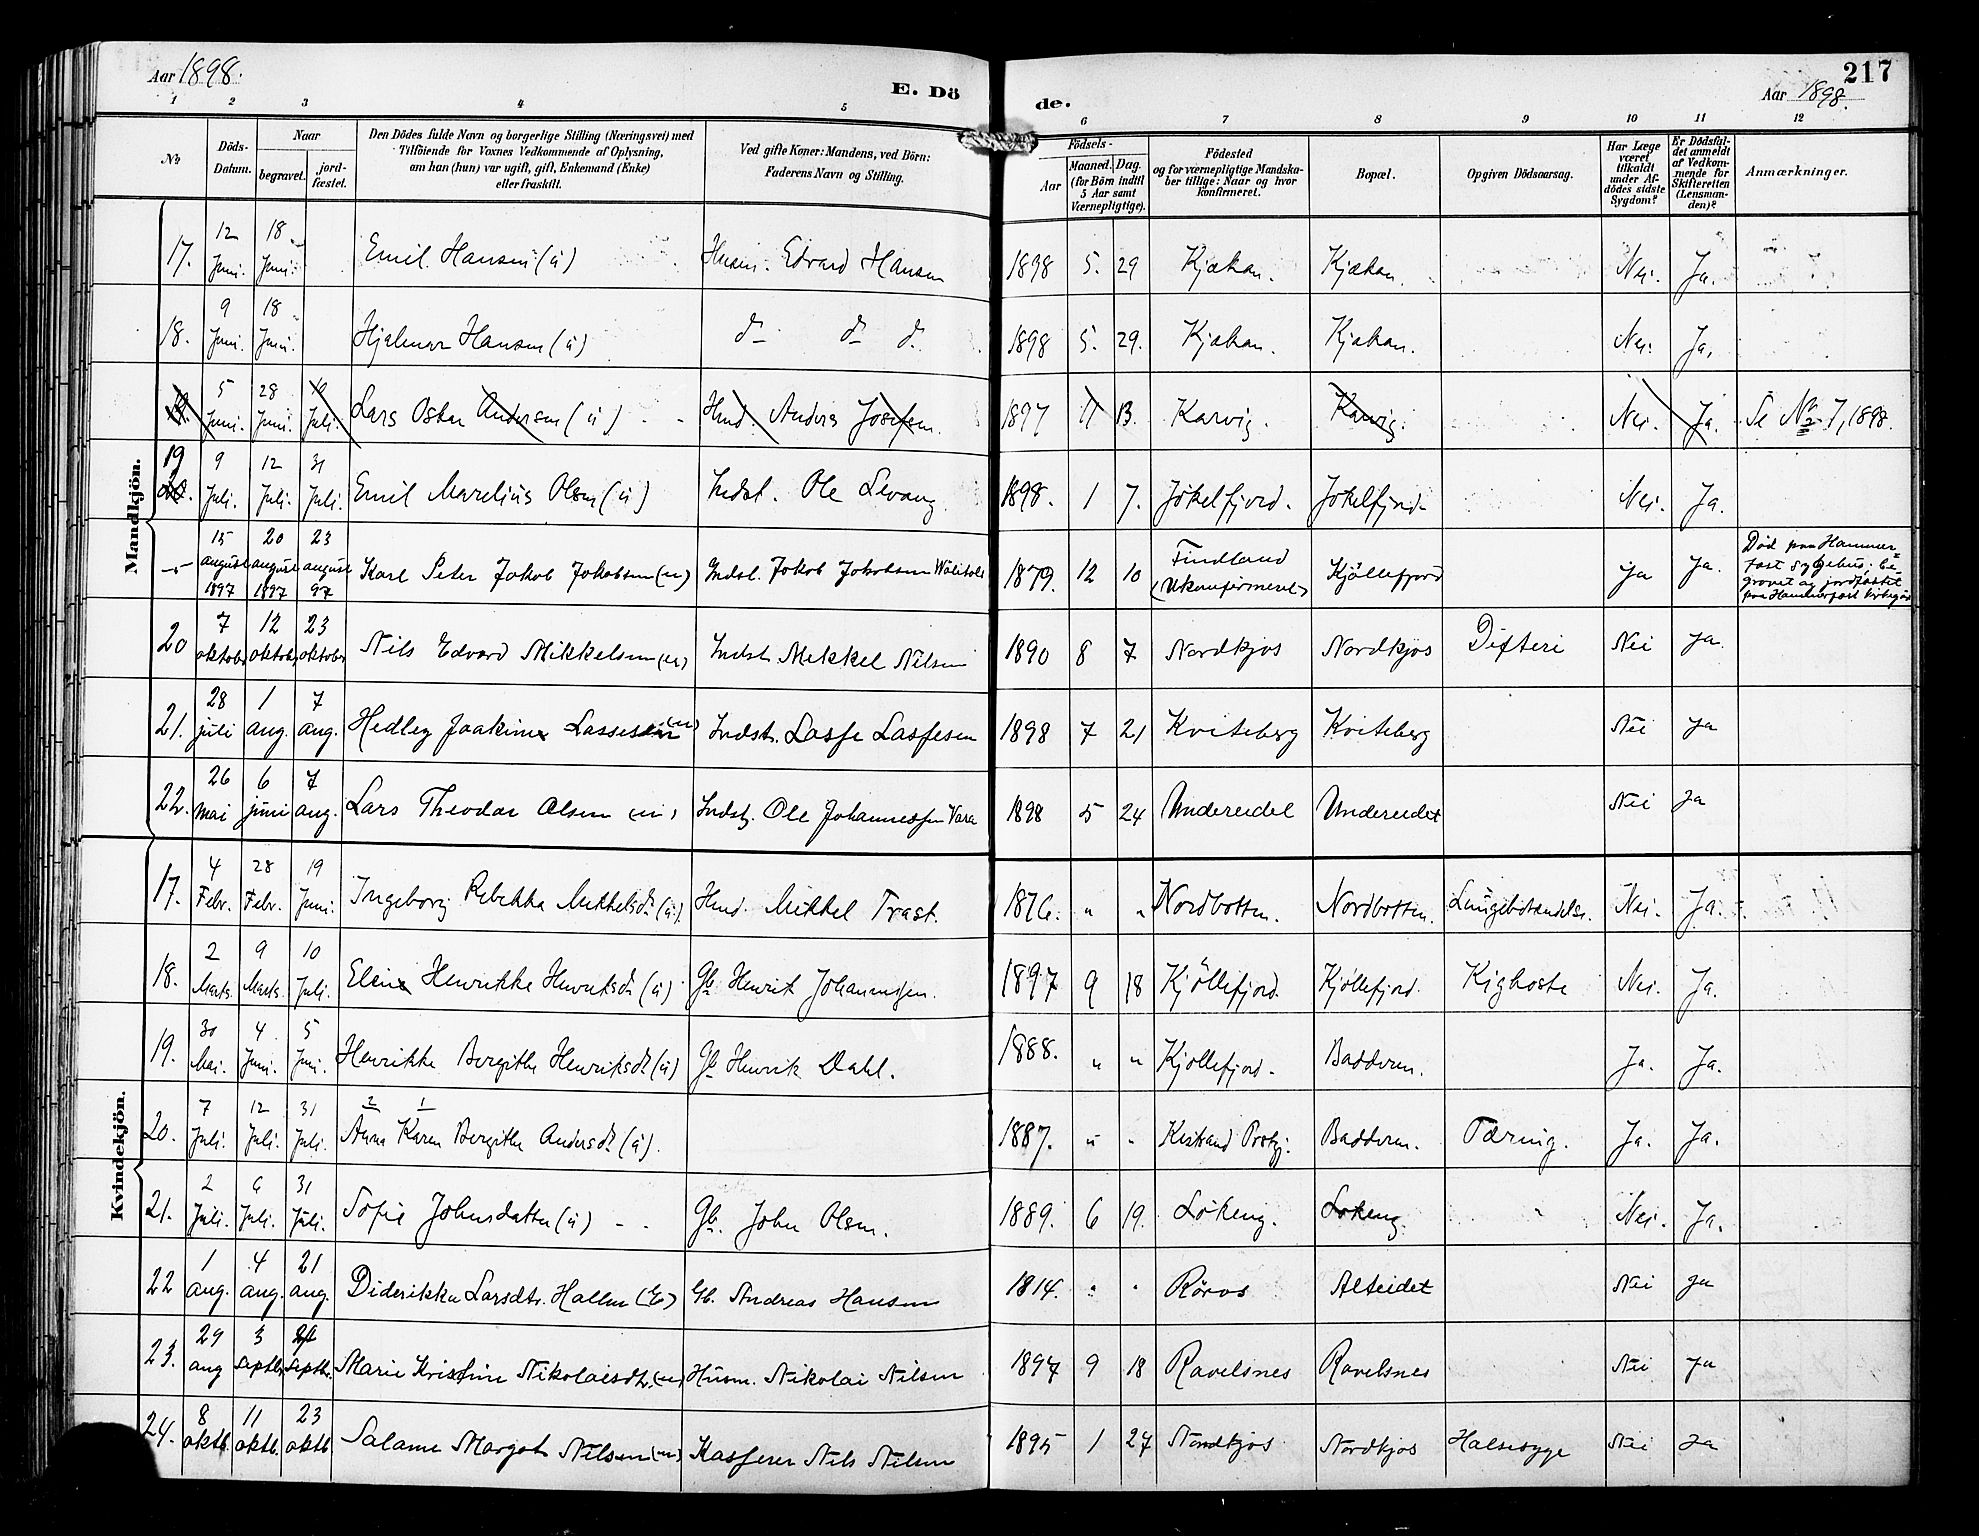 Aar 1898.
E. Dö
de.
217
Aar 1898.
1 2 3 4 5 6 7 8 9 10 11 12
No
Döds-Datum.
Naar
begravet.
jord-fæstet.
Den Dödes fulde Navn og borgerlige Stilling (Næringsvei) med
Tilföiende for Voxnes Vedkommende af Oplysning,
om han (hun) var ugift, gift, Enkemand (Enke)
eller fraskilt.
Ved gifte Koner: Mandens, ved Börn:
Faderens Navn og Stilling.
Födsels-
Aar
Maaned. Dag.
(for Börn indtil
5 Aar samt
Værnepligtige).
Födested
og for værnepligtige Mandska-
ber tillige: Naar og hvor
konfirmeret.
Bopæl.
Opgiven Dödsaarsag.
Har Læge
været
tilkaldt
under Af-
dödes sidste
Sygdom?
Er Dödsfal-
det anmeldt
af Vedkom-
mende for
Skifteretten
(Lensman-
den)?
Anmærkninger.
Mandkjön.
17. 12 Juni. 18 Juni. Emil Hansen (ü) Husm. Edvard Hansen 1898 5. 29 Kjækan. Kjækan. Nei. Ja.
18. 9 Juni. 18 Juni. Hjalmar Hansen (ü) do do do 1898 5. 29. Kjækan. Kjækan. Nei. Ja.
5 Juni. 28 Juni. Juli. Lars Oskar Andersen (ü) Hmd. Anders Josefsen. 1897 11 13. Karvig. Karvig. Nei. Ja. Se No 7, 1898.
19 9 Juli. 12 Juli. 31 Juli. Emil Marelius Olsen (ü) Indst. Ole Levang. 1898. 1 7. Jökelfjord. Jökelfjord. Nei. Ja.
15 august 1897 20 august 1897 23 august 97 Karl Peter Jakob Jakobsen (u) Indst. Jakob Jakobsen 1879. 12 10 Findland (Ukonfirmeret) Kjöllefjord Ja Ja. Död paa Hammer-
fest Sygehus; be-
gravet og jordfæstet
paa Hammerfest Kirkegaard
20 7 oktober 12 oktober 23 oktober Nils Edvard Mikkelsen (u) Indst. Mikkel Nilsen 1890 8 7 Nordkjos Nordkjos Difteri Nei Ja.
21. 28 juli 1 aug. 7 aug. Hedley Joakim Lassesen (u) Indst. Lasse Lassesen 1898 7 21 Kviteberg Kviteberg Nei Ja
22. 26 mai 6 juni 7 aug. Lars Theodor Olsen (u) Indst. Ole Johannessen Vara 1898 5 24 Undereidet Undereidet Nei Ja
Kvindekjön.
17. 4 Febr. 28 Febr. 19 Juni. Ingeborg Rebekka Mikkelsdr (ü). Hmd. Mikkel Trast. 1876. " " Nordbotten. Nordbotten. Lungebetændelse. Nei. Ja.
18. 2 Marts. 9 Marts. 10 Juli. Elen Henrikke Henriksdr (ü) Gb Henrik Johannessen. 1897 9 18 Kjöllefjord. Kjöllefjord. Kighoste Nei. Ja.
19. 30 Mai. 4 Juni. 5 Juni. Henrikke Bergithe Henriksdr (ü) Gb Henrik Dahl. 1888. " " Kjöllefjord. Badderen. Ja. Ja.
20. 7 Juli. 12 Juli. 31 Juli. 2 1 Anna Karen Bergithe Andersdr (ü). 1887. " " Kistrand Prstgj. Badderen. Tæring. Ja. Ja.
21. 2 Juli. 6 Juli. 31 Juli. Sofie Johnsdatter (ü) Gb. John Olsen. 1889. 6 19. Lökeng. Lökeng. Nei. Ja.
22 1 aug. 4 aug. 21 aug. Diderikka Larsdtr. Hallen (E) Gb. Andreas Hansen 1814. " " Röros Alteidet Nei Ja
23. 29 aug 3 septbr. septbr. Marie Kristine Nikolaisdtr. (u) Husm. Nikolai Nilsen 1897 9 18 Ravelsnes Ravelsnes Nei Ja
24. 8 oktb. 11 oktb. 23 oktb Salame Margot Nilsen (u) Kasserer Nils Nilsen 1895 1 27 Nordkjos Nordkjos Halssyge Nei Ja